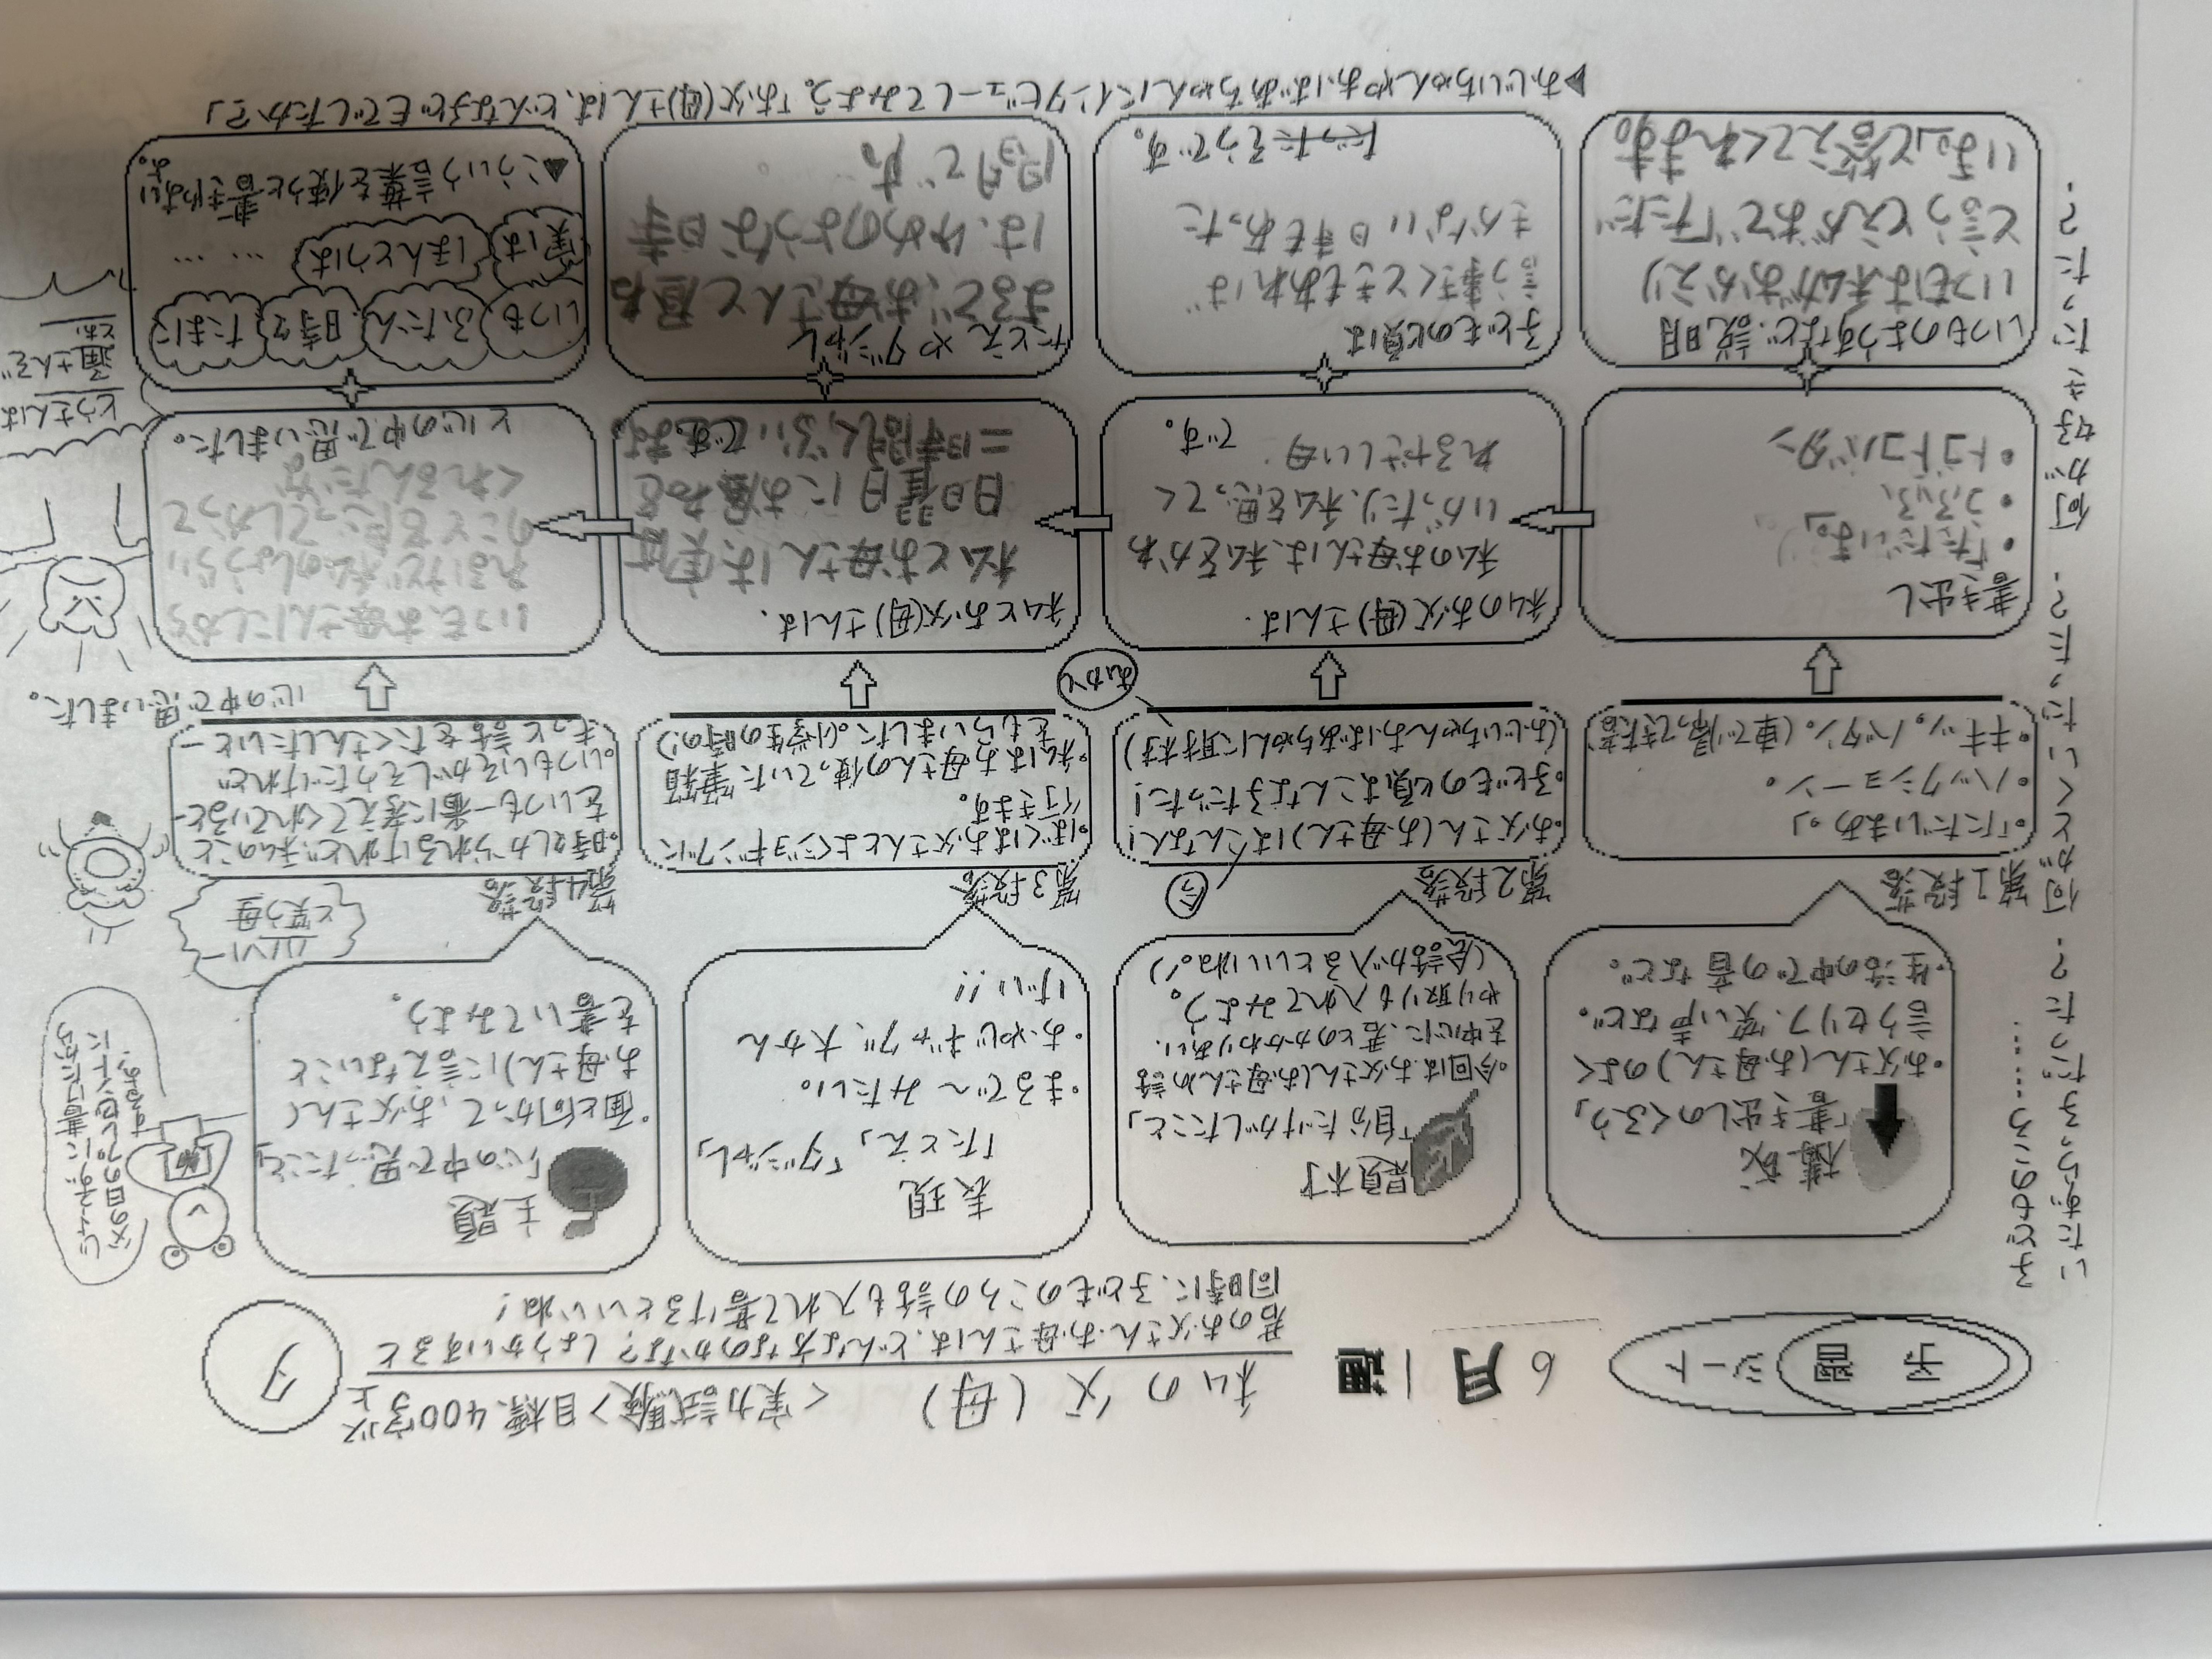 予習
シート
6月1週
私の父(母)
<実力試験>目標、400字以上
夕
君のお父さん・お母さんは、どんな方なのかな?しょうかいすると
同時に、子どものころの話も入れて書けるといいね!
構成
「書き出しのくふう」
・お父さん(お母さん)のよく
言うセリフ、笑い声など。
・生活の中での音など。
題材
「自分だけがしたこと」
・今回は、お父さん(お母さん)の話
を中心に、君とのかかわりあい、
やり取りも入れてみよう。
(会話が入るといいね。)
表現
「たとえ」「ダジャレ」
・まるで〜みたい。
・おやじギャグ、大かん
げい!!
主題
「心の中で思ったこと」
・面と向かって、お父さん(
お母さん)に言えないこと
を書いてみよう。
子どものころ……
いたずらっ子だった?
何がとくいだった?
何が好きだった?
第1段落
・「ただいまあ。」
・ハックション。
・キキッ。バタン。(車で帰ってきた音)
第2段落
今
・お父さん(お母さん)はこんな人!
・子どもの頃はこんな子だった!
(おじいちゃんおばあちゃんに取材)
むかし
第3段落
・ぼくはお父さんとよくジョギングに
行きます。
・私はお母さんの使っていた筆箱
をもらいました。(小学生の時の)
第4段落
・時々しかられるけれど、私のこと
をいつも一番に考えてくれていると―
・いつもいそがしそうだけれど
もっと話をたくさんしたいと―
心の中で思いました。
と笑う母
書き出し
・「ただいま。」
・うふふ
・トコトコバタン
私のお父(母)さんは、
私のお母さんは、私をかわ
いがったり、私を思ってく
れるやさしい母
です。
私とお父(母)さんは、
私とお母さんは、実は
日曜日にお昼ねを
二時間くらい
です。
いつも、お母さんにしから
れるけど、私のしょうらい
のことを思ってしかって
くれるんだな
と心の中で思いました。
いつものようすなど、説明
いつもは私がおかえり
と言うとえがおで「ただ
いま」と答えてくれます。
子どもの頃は
言う事きくときもあれば
きかない時もあった
だったそうです。
たとえやダジャレ
まるで、お母さんと昼ね
は、ゆめのような時
間です。
いつも
ふだん
時々
たまに
実は
ほんとうは
……
▲こういう言葉を使うと書きやすい
よ。
▶おじいちゃんやおばあちゃんにインタビューしてみよう。「お父(母)さんは、どんな子どもでしたか?」